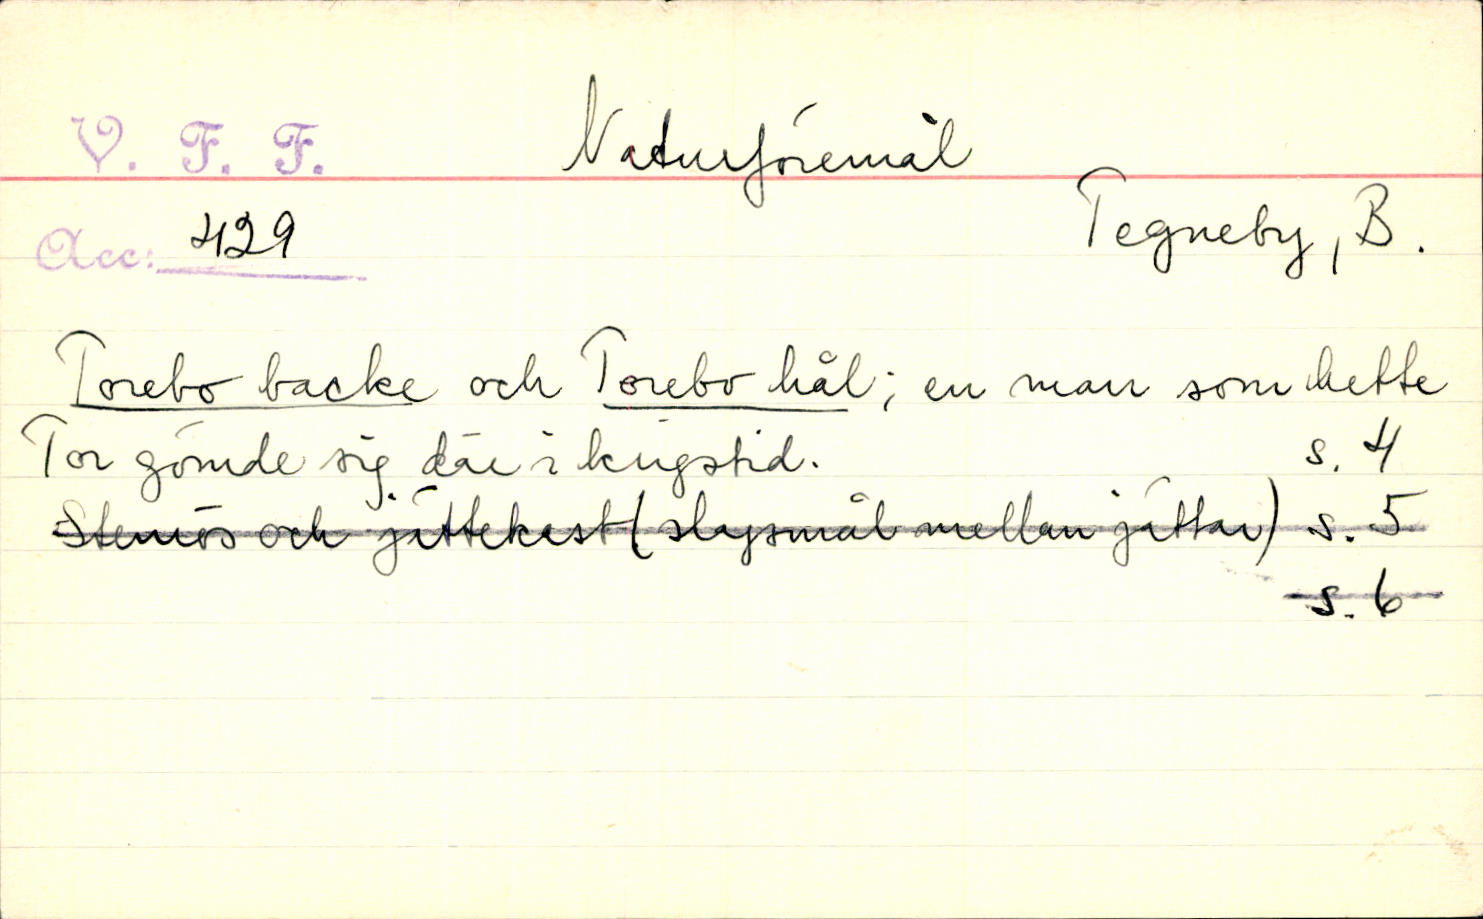 V. F. F.
Naturföremål
Acc: 429
Tegneby, B.
Torebo backe och Torebo hål; en man som hette
Tor gömde sig där i krigstid. s. 4
Stenrös och jättekast (slagsmål mellan jättar) s. 5
s. 6